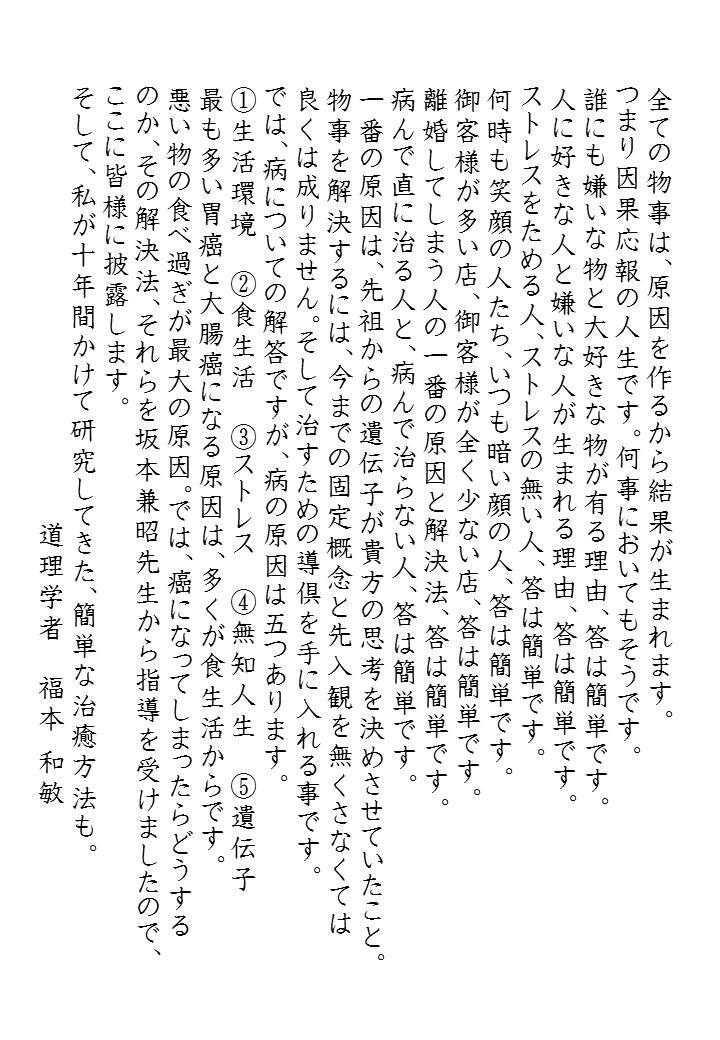 全ての物事は、原因を作るから結果が生まれます。
つまり因果応報の人生です。何事においてもそうです。
誰にも嫌いな物と大好きな物が有る理由、答は簡単です。
人に好きな人と嫌いな人が生まれる理由、答は簡単です。
ストレスをためる人、ストレスの無い人、答は簡単です。
何時も笑顔の人たち、いつも暗い顔の人、答は簡単です。
御客様が多い店、御客様が全く少ない店、答は簡単です。
離婚してしまう人の一番の原因と解決法、答は簡単です。
病んで直に治る人と、病んで治らない人、答は簡単です。
一番の原因は、先祖からの遺伝子が貴方の思考を決めさせていたこと。
物事を解決するには、今までの固定概念と先入観を無くさなくては
良くは成りません。そして治すための導倶を手に入れる事です。
では、病についての解答ですが、病の原因は五つあります。
①生活環境 ②食生活 ③ストレス ④無知人生 ⑤遺伝子
最も多い胃癌と大腸癌になる原因は、多くが食生活からです。
悪い物の食べ過ぎが最大の原因。では、癌になってしまったらどうする
のか、その解決法、それらを坂本兼昭先生から指導を受けましたので、
ここに皆様に披露します。
そして、私が十年間かけて研究してきた、簡単な治癒方法も。
道理学者 福本 和敏